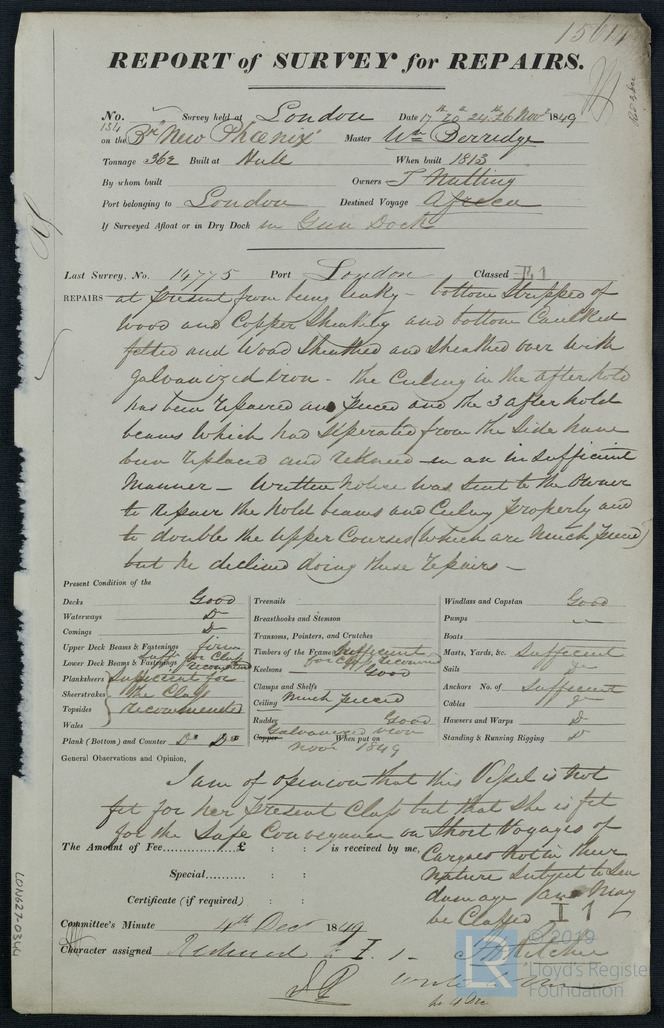 15614
REPORT of SURVEY for REPAIRS.
No. Survey held at London Date 17th 20th 24th 26 Novr 1849
184
on the Br "New Phœnix" Master Wm Berridge
Tonnage 362 Built at Hull When built 1813
By whom built Owners T Nutting
Port belonging to London Destined Voyage Africa
If Surveyed Afloat or in Dry Dock in Gun Dock
Last Survey, No. 14775 Port London Classed Æ 1
REPAIRS at present from being leaky - bottom Stripped of
Wood and Copper Sheathing and bottom Caulked
felted and Wood Sheathed and Sheathed over with
Galvanized Iron - the Ceiling in the after hold
has been repaired and pieced and the 3 after hold
beams which had seperated from the Side have
been replaced and rekneed in an insufficient
Manner - Written notice was sent to the Owner
to repair the hold beams and Ceiling properly and
to double the Upper Courses (which are Much pieced)
but he declined doing these repairs -
Present Condition of the
Decks Good
Waterways Do
Comings Do
Upper Deck Beams & Fastenings firm
Lower Deck Beams & Fastenings sufft for Class recommended
Planksheers Sufficient for
Sheerstrakes the Class
Topsides recommended
Wales
Plank (Bottom) and Counter Do Do
Treenails
Breasthooks and Stemson
Transoms, Pointers, and Crutches
Timbers of the Frame Sufficient
for Class recommd
Keelsons Good
Clamps and Shelfs
Ceiling Much pieced
Rudder Good
Galvanized Iron
Copper When put on
Novr 1849
Windlass and Capstan Good
Pumps
Boats
Masts, Yards, &c. Sufficient
Sails Do
Anchors No. of Sufficient
Cables Do
Hawsers and Warps Do
Standing & Running Rigging Do
General Observations and Opinion,
I am of Opinion that this Vessel is not
fit for her present Class but that she is fit
for the Safe Conveyance on Short Voyages of
Cargoes not in their
nature Subject to Sea
damage and May
be Classed I 1
The Amount of Fee......£ : : is received by me,
Special......... : :
Certificate (if required) : :
Committee's Minute 4th Decr 1849
Character assigned Reduced to I. 1 -
LON627-0344
© 2019
Lloyd's Register
Foundation
LR